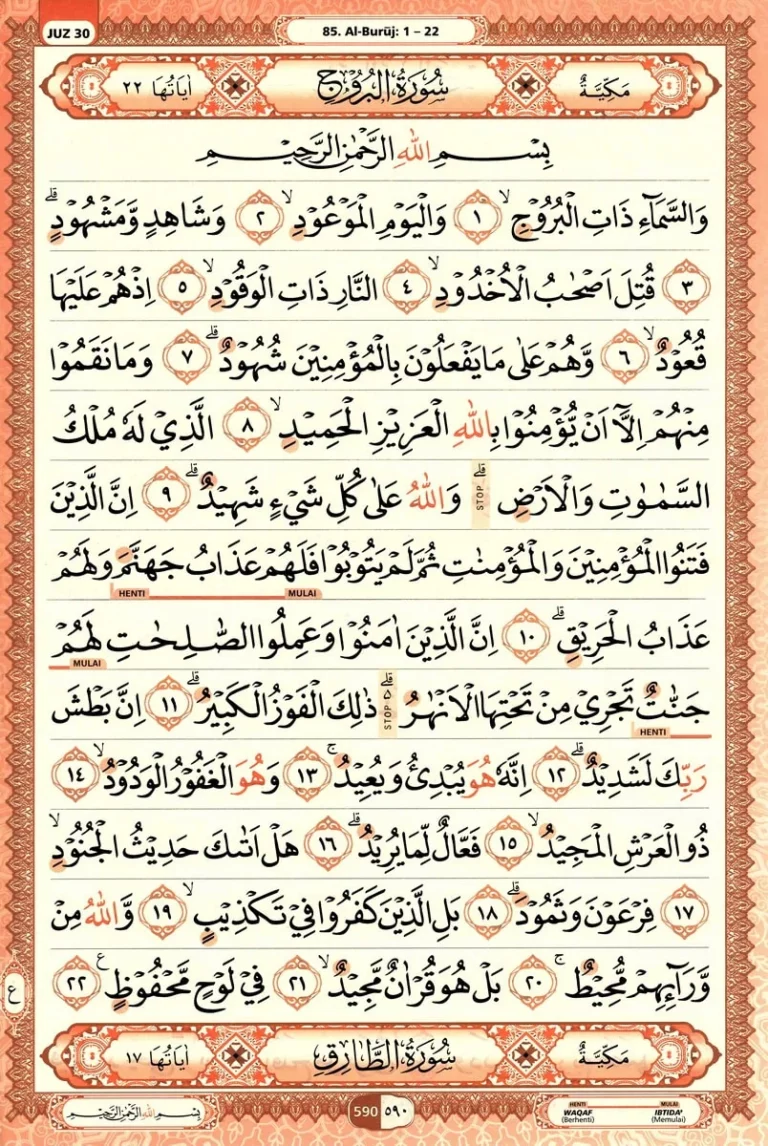 JUZ 30
85. Al-Burūj: 1 – 22
مَكِّيَّةٌ سُوْرَةُ الْبُرُوْجِ اٰيَاتُهَا ٢٢
بِسْمِ اللّٰهِ الرَّحْمٰنِ الرَّحِيْمِ
وَالسَّمَاۤءِ ذَاتِ الْبُرُوْجِۙ ١ وَالْيَوْمِ الْمَوْعُوْدِۙ ٢ وَشَاهِدٍ وَّمَشْهُوْدٍۗ
٣ قُتِلَ اَصْحٰبُ الْاُخْدُوْدِۙ ٤ النَّارِ ذَاتِ الْوَقُوْدِۙ ٥ اِذْهُمْ عَلَيْهَا
قُعُوْدٌۙ ٦ وَّهُمْ عَلٰى مَا يَفْعَلُوْنَ بِالْمُؤْمِنِيْنَ شُهُوْدٌۗ ٧ وَمَا نَقَمُوْا
مِنْهُمْ اِلَّآ اَنْ يُّؤْمِنُوْا بِاللّٰهِ الْعَزِيْزِ الْحَمِيْدِۙ ٨ الَّذِيْ لَهٗ مُلْكُ
السَّمٰوٰتِ وَالْاَرْضِۗ STOP وَاللّٰهُ عَلٰى كُلِّ شَيْءٍ شَهِيْدٌۗ ٩ اِنَّ الَّذِيْنَ
فَتَنُوا الْمُؤْمِنِيْنَ وَالْمُؤْمِنٰتِ ثُمَّ لَمْ يَتُوْبُوْا فَلَهُمْ عَذَابُ جَهَنَّمَ وَلَهُمْ
HENTI MULAI
عَذَابُ الْحَرِيْقِۗ ١٠ اِنَّ الَّذِيْنَ اٰمَنُوْا وَعَمِلُوا الصّٰلِحٰتِ لَهُمْ
MULAI
جَنّٰتٌ تَجْرِيْ مِنْ تَحْتِهَا الْاَنْهٰرُۗ STOP ۵ ذٰلِكَ الْفَوْزُ الْكَبِيْرُۗ ١١ اِنَّ بَطْشَ
HENTI
رَبِّكَ لَشَدِيْدٌۗ ١٢ اِنَّهٗ هُوَ يُبْدِئُ وَيُعِيْدُۚ ١٣ وَهُوَ الْغَفُوْرُ الْوَدُوْدُۙ ١٤
ذُو الْعَرْشِ الْمَجِيْدُۙ ١٥ فَعَّالٌ لِّمَا يُرِيْدُۗ ١٦ هَلْ اَتٰىكَ حَدِيْثُ الْجُنُوْدِۙ
١٧ فِرْعَوْنَ وَثَمُوْدَۗ ١٨ بَلِ الَّذِيْنَ كَفَرُوْا فِيْ تَكْذِيْبٍۙ ١٩ وَّاللّٰهُ مِنْ
وَّرَاۤىِٕهِمْ مُّحِيْطٌۚ ٢٠ بَلْ هُوَ قُرْاٰنٌ مَّجِيْدٌۙ ٢١ فِيْ لَوْحٍ مَّحْفُوْظٍ ࣖ ٢٢
ع
مَكِّيَّةٌ سُوْرَةُ الطَّارِقِ اٰيَاتُهَا ١٧
بِسْمِ اللّٰهِ الرَّحْمٰنِ الرَّحِيْمِ
590 ٥٩٠
HENTI MULAI
WAQAF IBTIDA'
(Berhenti) (Memulai)